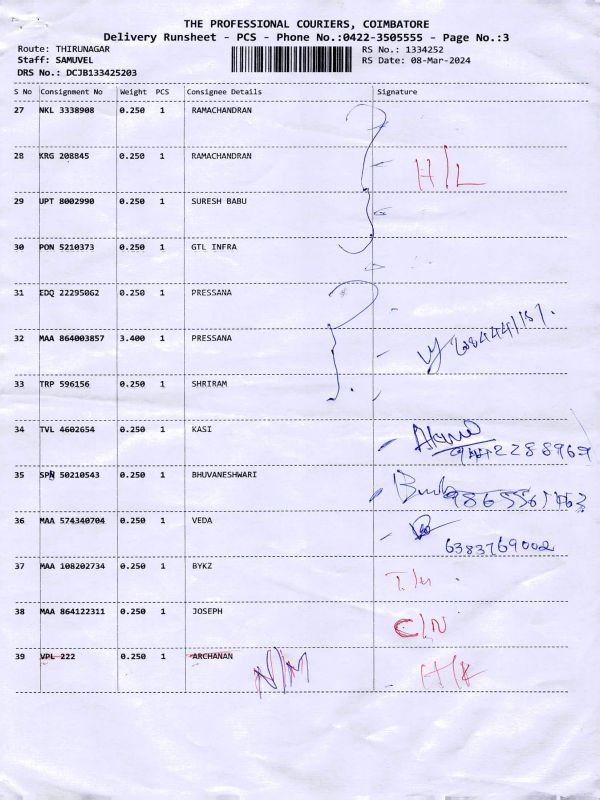 THE PROFESSIONAL COURIERS, COIMBATORE
Delivery Runsheet - PCS - Phone No.:0422-3505555 - Page No.:3
Route: THIRUNAGAR RS No.: 1334252
Staff: SAMUVEL RS Date: 08-Mar-2024
DRS No.: DCJB133425203
S No Consignment No Weight PCS Consignee Details Signature
27 NKL 3338908 0.250 1 RAMACHANDRAN
28 KRG 208845 0.250 1 RAMACHANDRAN H/L
29 UPT 8002990 0.250 1 SURESH BABU
30 PON 5210373 0.250 1 GTL INFRA
31 EDQ 22295062 0.250 1 PRESSANA
32 MAA 864003857 3.400 1 PRESSANA
33 TRP 596156 0.250 1 SHRIRAM
34 TVL 4602654 0.250 1 KASI
35 SPN 50210543 0.250 1 BHUVANESHWARI
36 MAA 574340704 0.250 1 VEDA
6383769002
37 MAA 108202734 0.250 1 BYKZ
38 MAA 864122311 0.250 1 JOSEPH C/N
39 VPL 222 0.250 1 ARCHANAN N/M